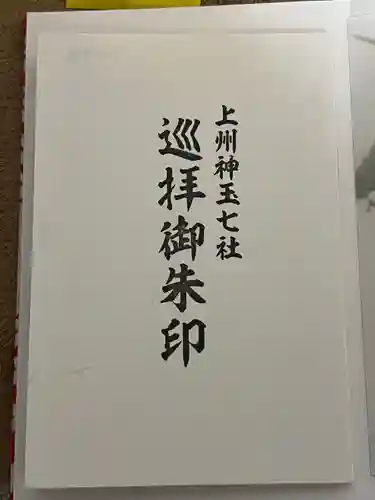 上州神玉七社
巡拝御朱印